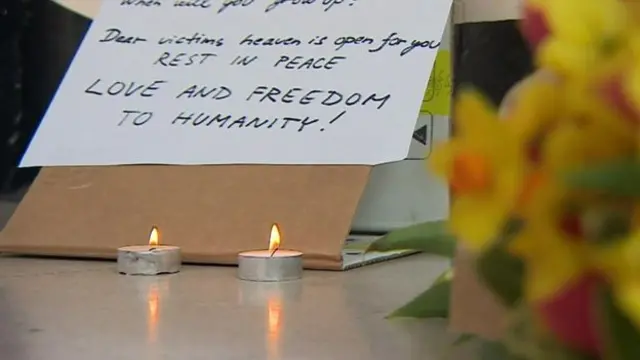 When will you grow up?
Dear victims heaven is open for you
REST IN PEACE
LOVE AND FREEDOM
TO HUMANITY!